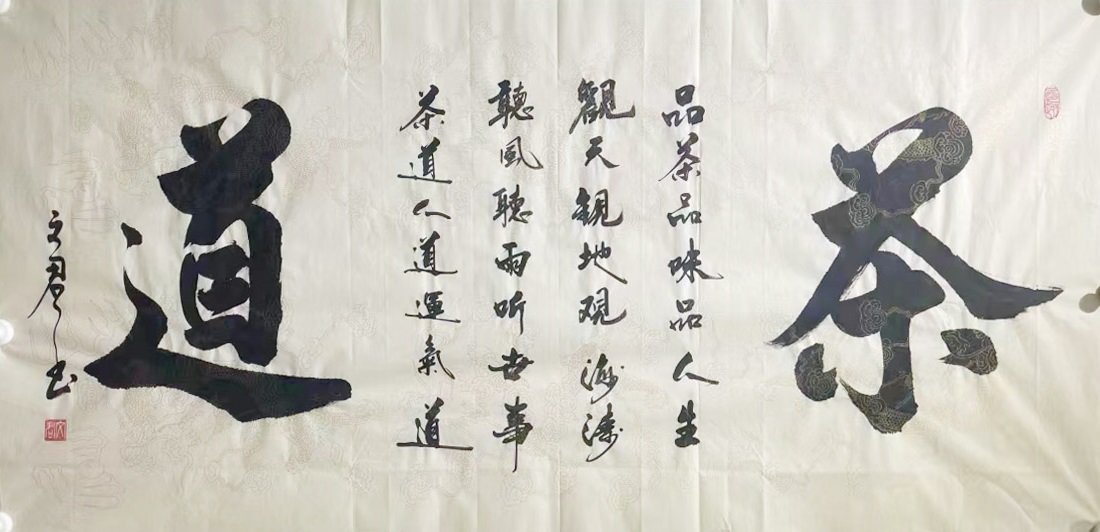 茶
品茶品味品人生
觀天觀地观海涛
聽風聽雨听世事
茶道人道運氣道
道
文君书
文君